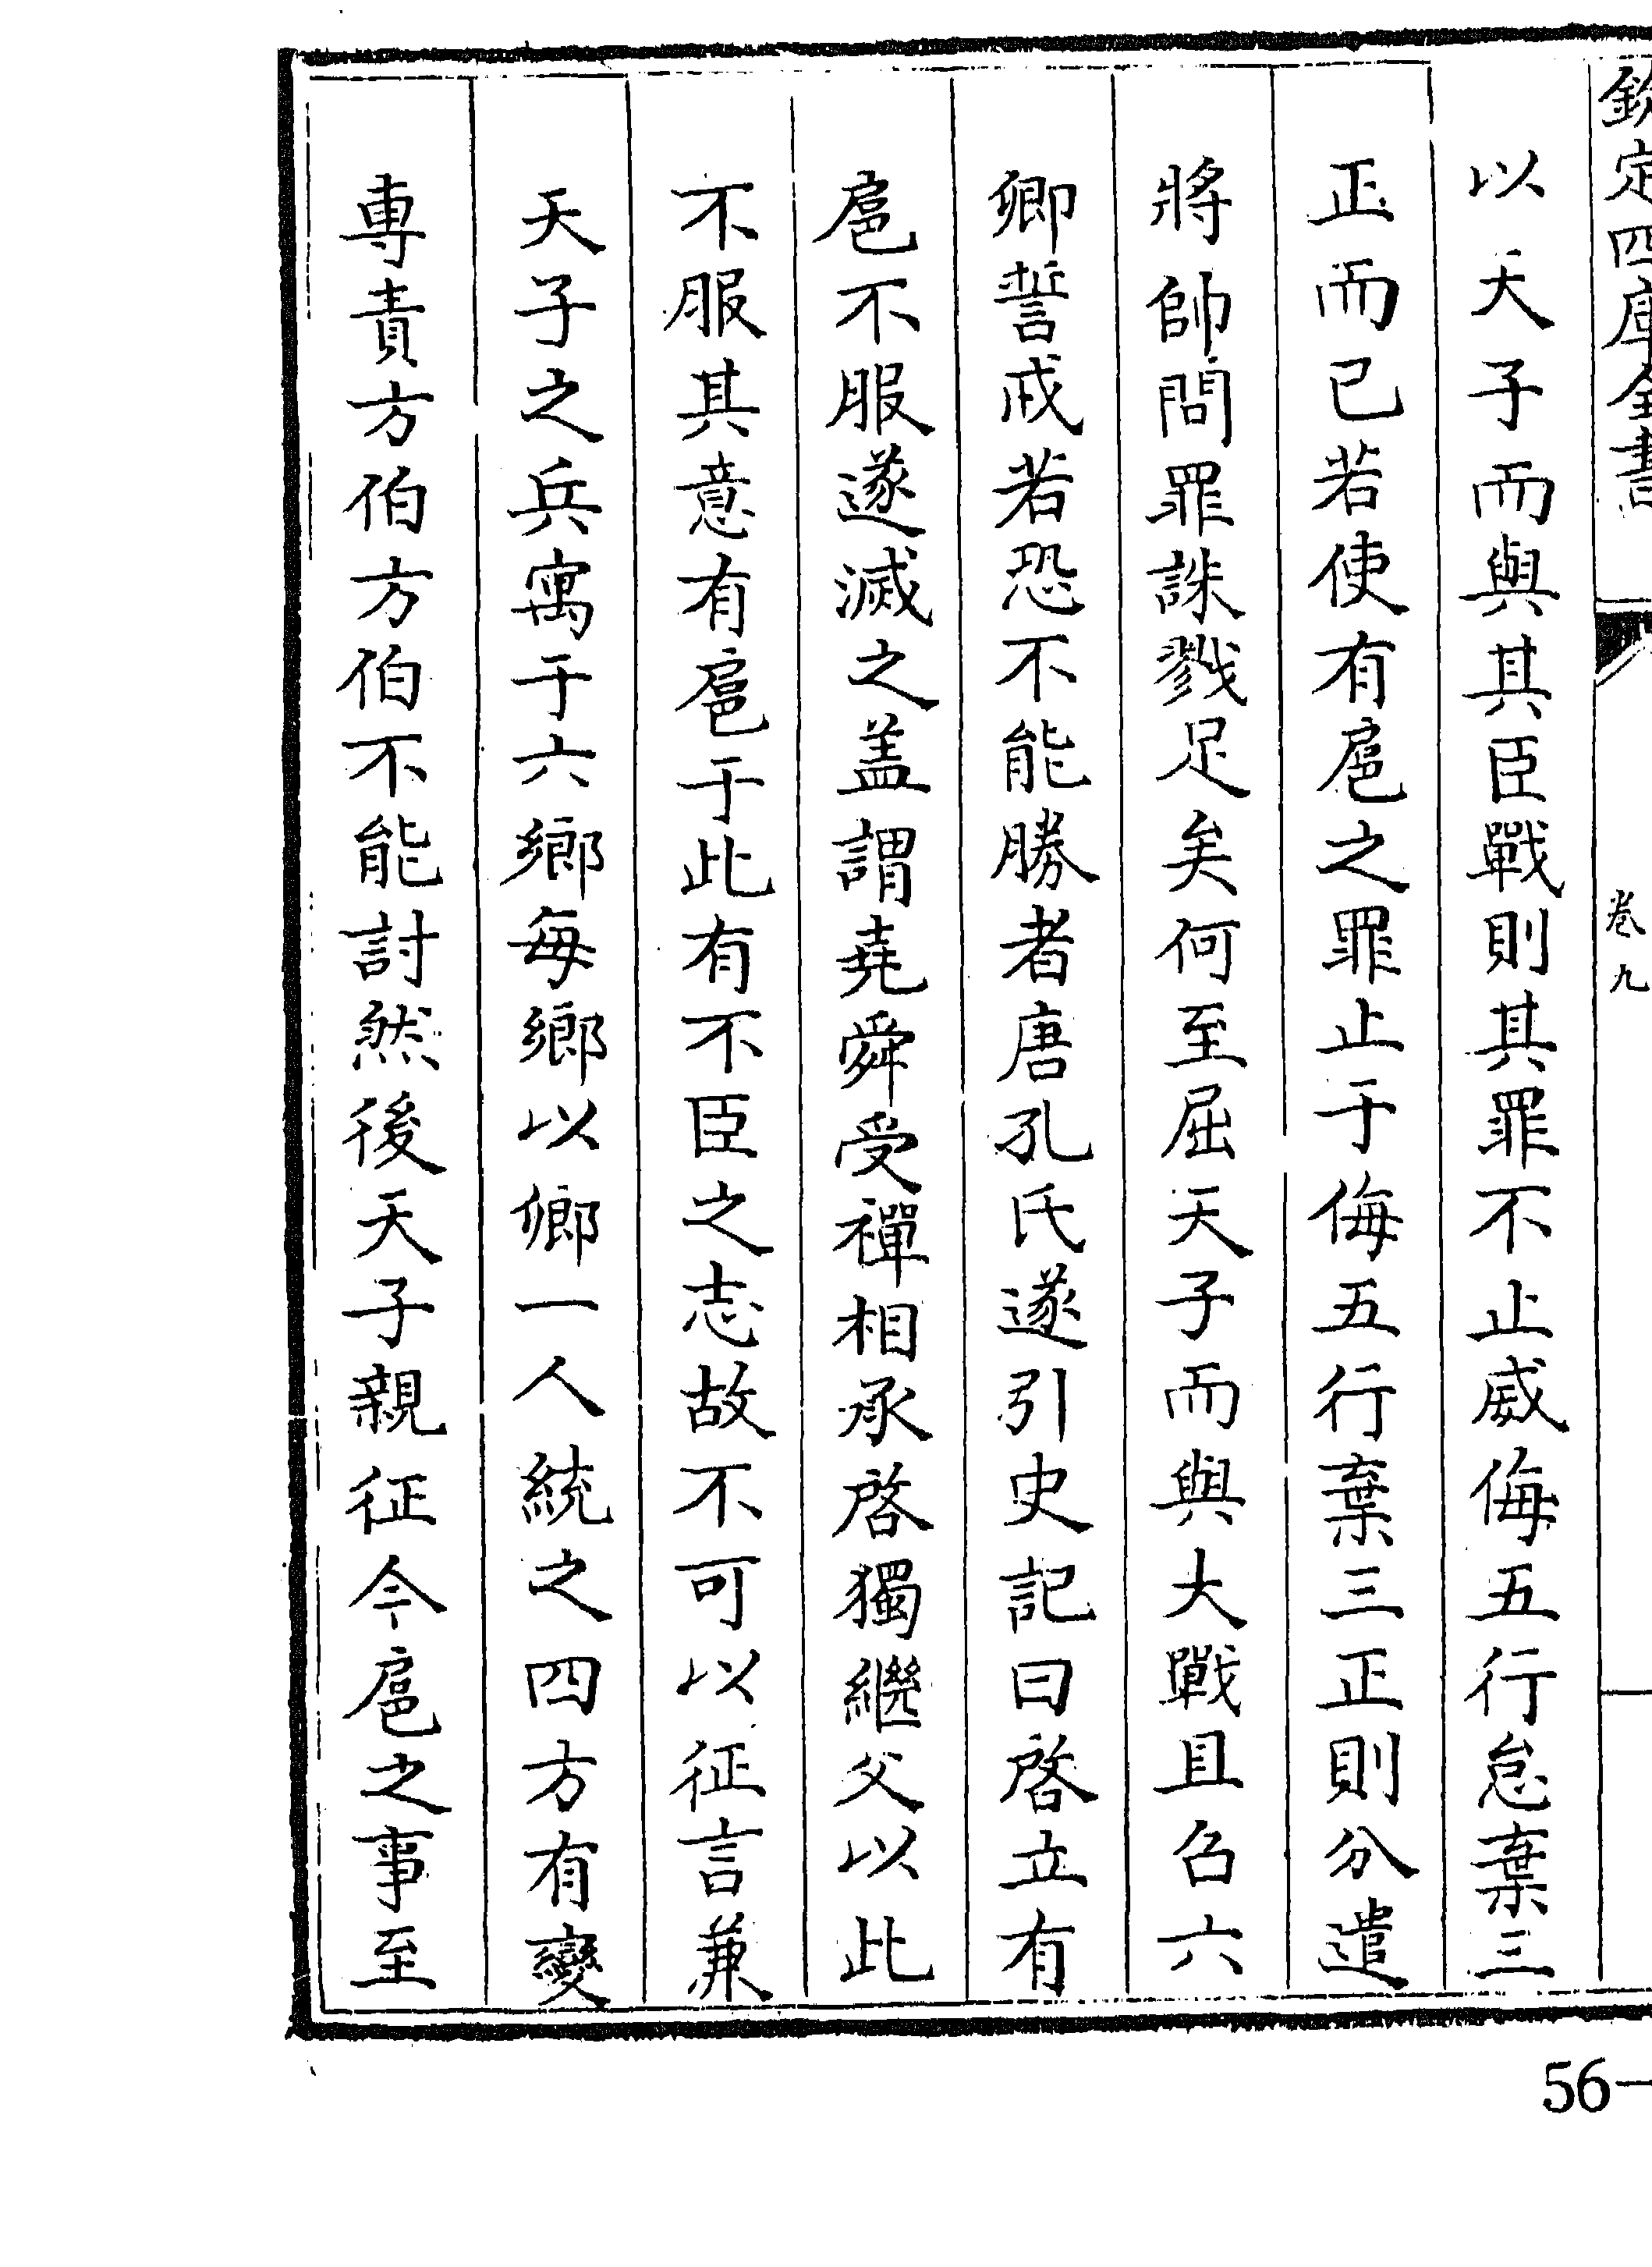 欽定四庫全書
卷九
以天子而與其臣戰則其罪不止威侮五行怠棄三
正而已若使有扈之罪止于侮五行棄三正則分遣
將帥問罪誅戮足矣何至屈天子而與大戰且召六
卿誓戒若恐不能勝者唐孔氏遂引史記曰啓立有
扈不服遂滅之盖謂堯舜受禪相承啓獨繼父以此
不服其意有扈于此有不臣之志故不可以征言兼
天子之兵寓于六鄉每鄉以鄉一人統之四方有變
專責方伯方伯不能討然後天子親征今扈之事至
56-